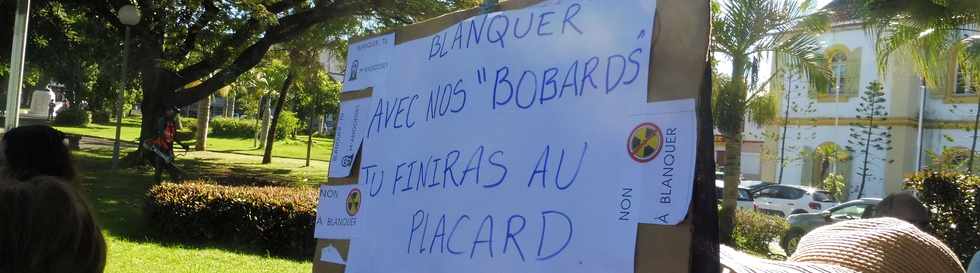 BLANQUER
AVEC NOS "BOBARDS"
TU FINIRAS AU
PLACARD.
BLANQUER, TU
NON
À BLANQUER
NON
À BLANQUER